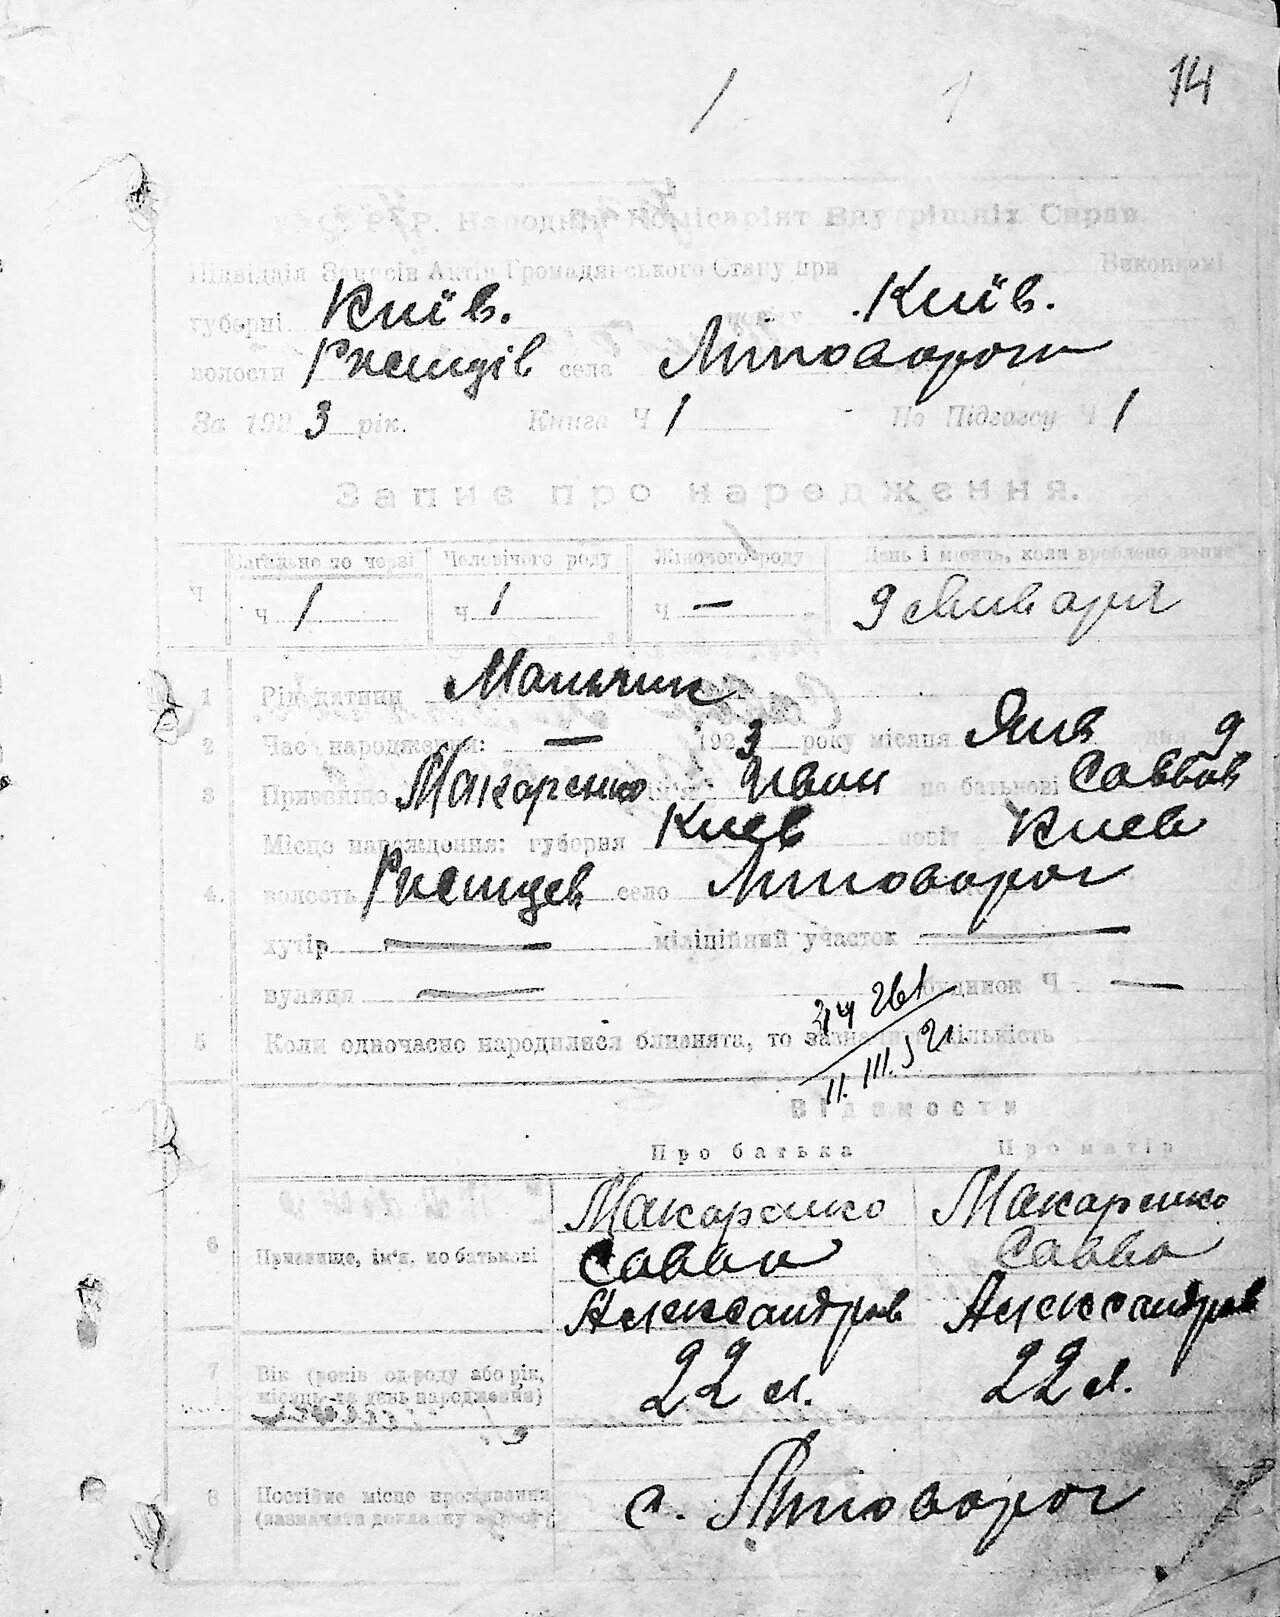 14
У.С.Р.Р. Народній Комісаріят Внутрішніх Справ.
Підвідділ Записів Актів Громадянського Стану при Виконкомі
губерні Київ. повіту Київ.
волости Ржищів села Липовороги
За 1923 рік. Книга Ч 1 По Підгаосу Ч 1
Запис про народження.
Ч Загальне по черзі Чоловічого роду Жіночого роду День і місяць, коли зроблено запис
ч 1 ч 1 ч — 9 Января
1 Рід дитини Мальчик
2 Час народження: — 1923 року місяця Янв дня 9
3 Призвище Макаренко Иван по батькові Саввов
Місце народження: губерня Киев повіт Киев
4. волость Ржищев село Липоворог
хутір — міліційний участок —
вулиця — будинок Ч —
5 Коли одночасно народилися близнята, то зазначити кількість
261
II. III. 52
Відомости
Про батька Про матір
6 Призвище, ім'я, по батькові Макаренко Макаренко
Савва Савва
Александров Александров
7 Вік (років од роду або рік, місяць та день народження) 22 л. 22 л.
8 Постійне місце проживання (зазначити докладну адресу) с. Липоворог